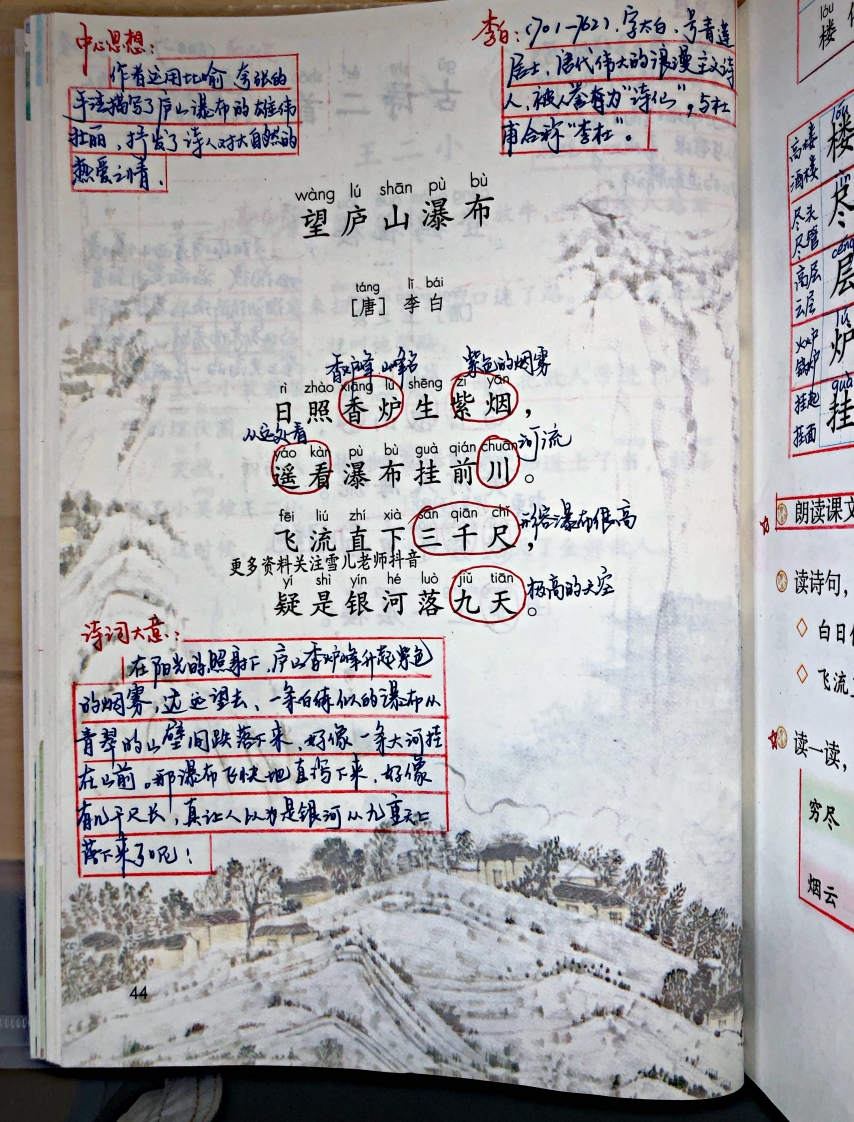 中心思想：
作者运用比喻、夸张的
手法描写了庐山瀑布的雄伟
壮丽，抒发了诗人对大自然的
热爱之情。
李白：(701—762)，字太白，号青莲
居士，唐代伟大的浪漫主义诗
人，被人誉为“诗仙”，与杜
甫合称“李杜”。
wàng lú shān pù bù
望庐山瀑布
táng lǐ bái
［唐］李白
香炉峰 山峰名
紫色的烟雾
rì zhào xiāng lú shēng zǐ yān
日照香炉生紫烟，
从远处看
yáo kàn pù bù guà qián chuān
遥看瀑布挂前川。
河流
fēi liú zhí xià sān qiān chǐ
飞流直下三千尺，
形容瀑布很高
更多资料关注雪儿老师抖音
yí shì yín hé luò jiǔ tiān
疑是银河落九天。
极高的天空
诗词大意：
在阳光的照射下，庐山香炉峰升起紫色
的烟雾，远远望去、一条白练似的瀑布从
青翠的山壁间跌落下来，好像一条大河挂
在山前。那瀑布飞快地直泻下来，好像
有几千尺长，真让人以为是银河从九重天上
落下来了呢！
44
lóu
楼
高楼
酒楼
lóu
楼
尽头
尽管
尽
高层
云层
céng
层
火炉
锅炉
lú
炉
挂起
挂面
guà
挂
朗读课文
读诗句，
白日依
飞流直
读一读，
穷尽
烟云